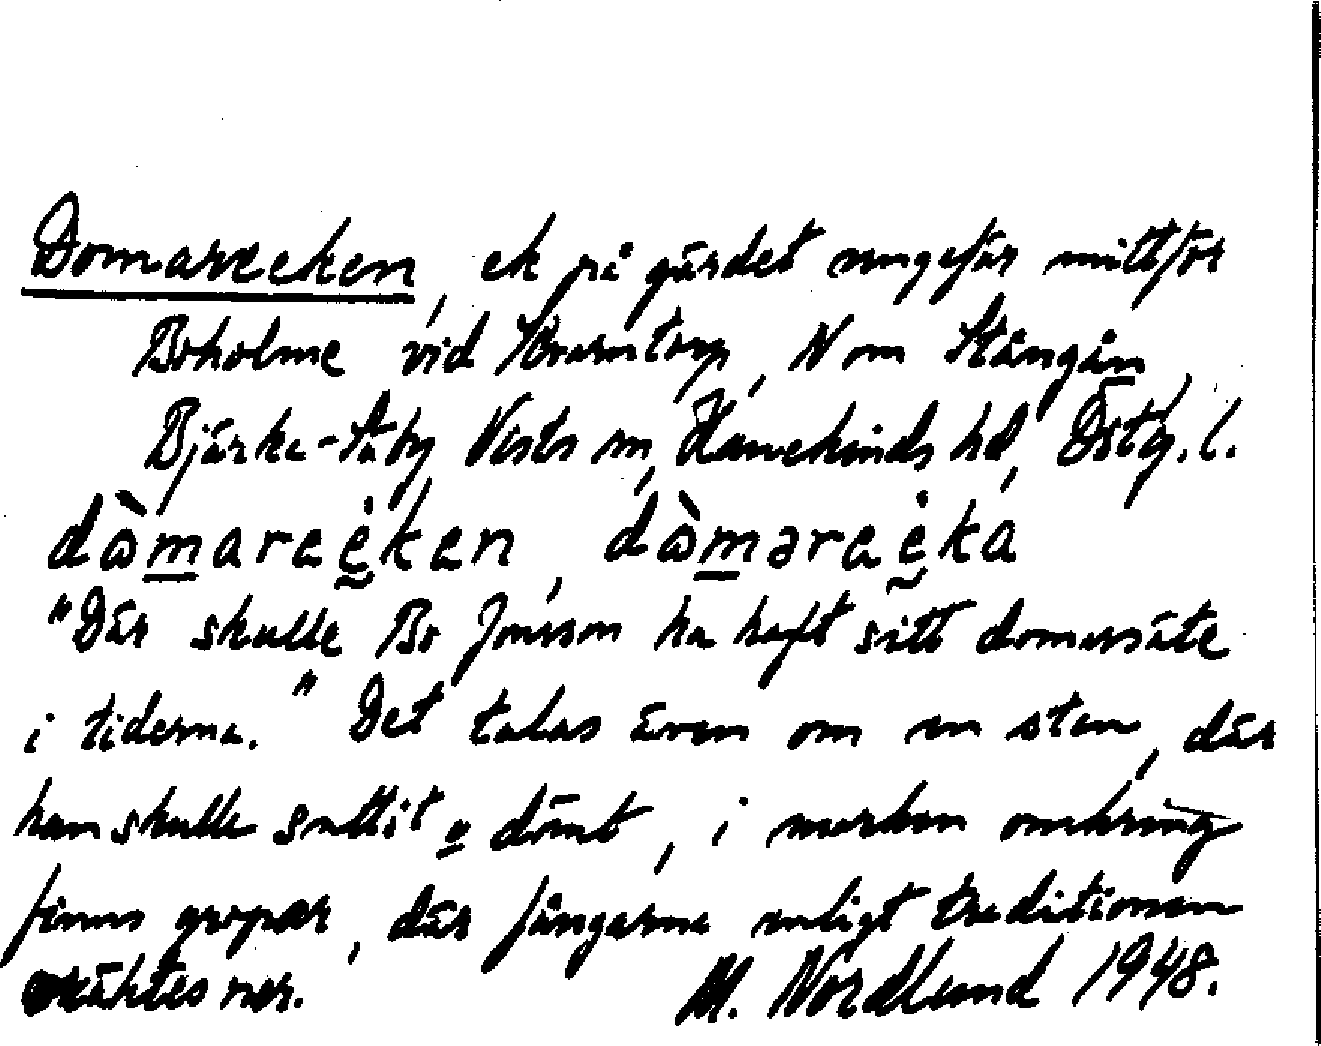 Domareeken, ek på gärdet ungefär mittför
Boholme vid Kvarntorp, N om Stångån,
Bjärka-Säby Vists sn, Hanekinds hd, Östg. l.
dɷ̀mareėken, dɷ̀məraeėka
"Där skulle Bo Jonsson ha haft sitt domarsäte
i tiderna." Det talas även om en sten, där
han skulle suttit o dömt, i marken omkring
finns gropar, där fångarna enligt traditionen
ner.
M. Nordlund 1948.